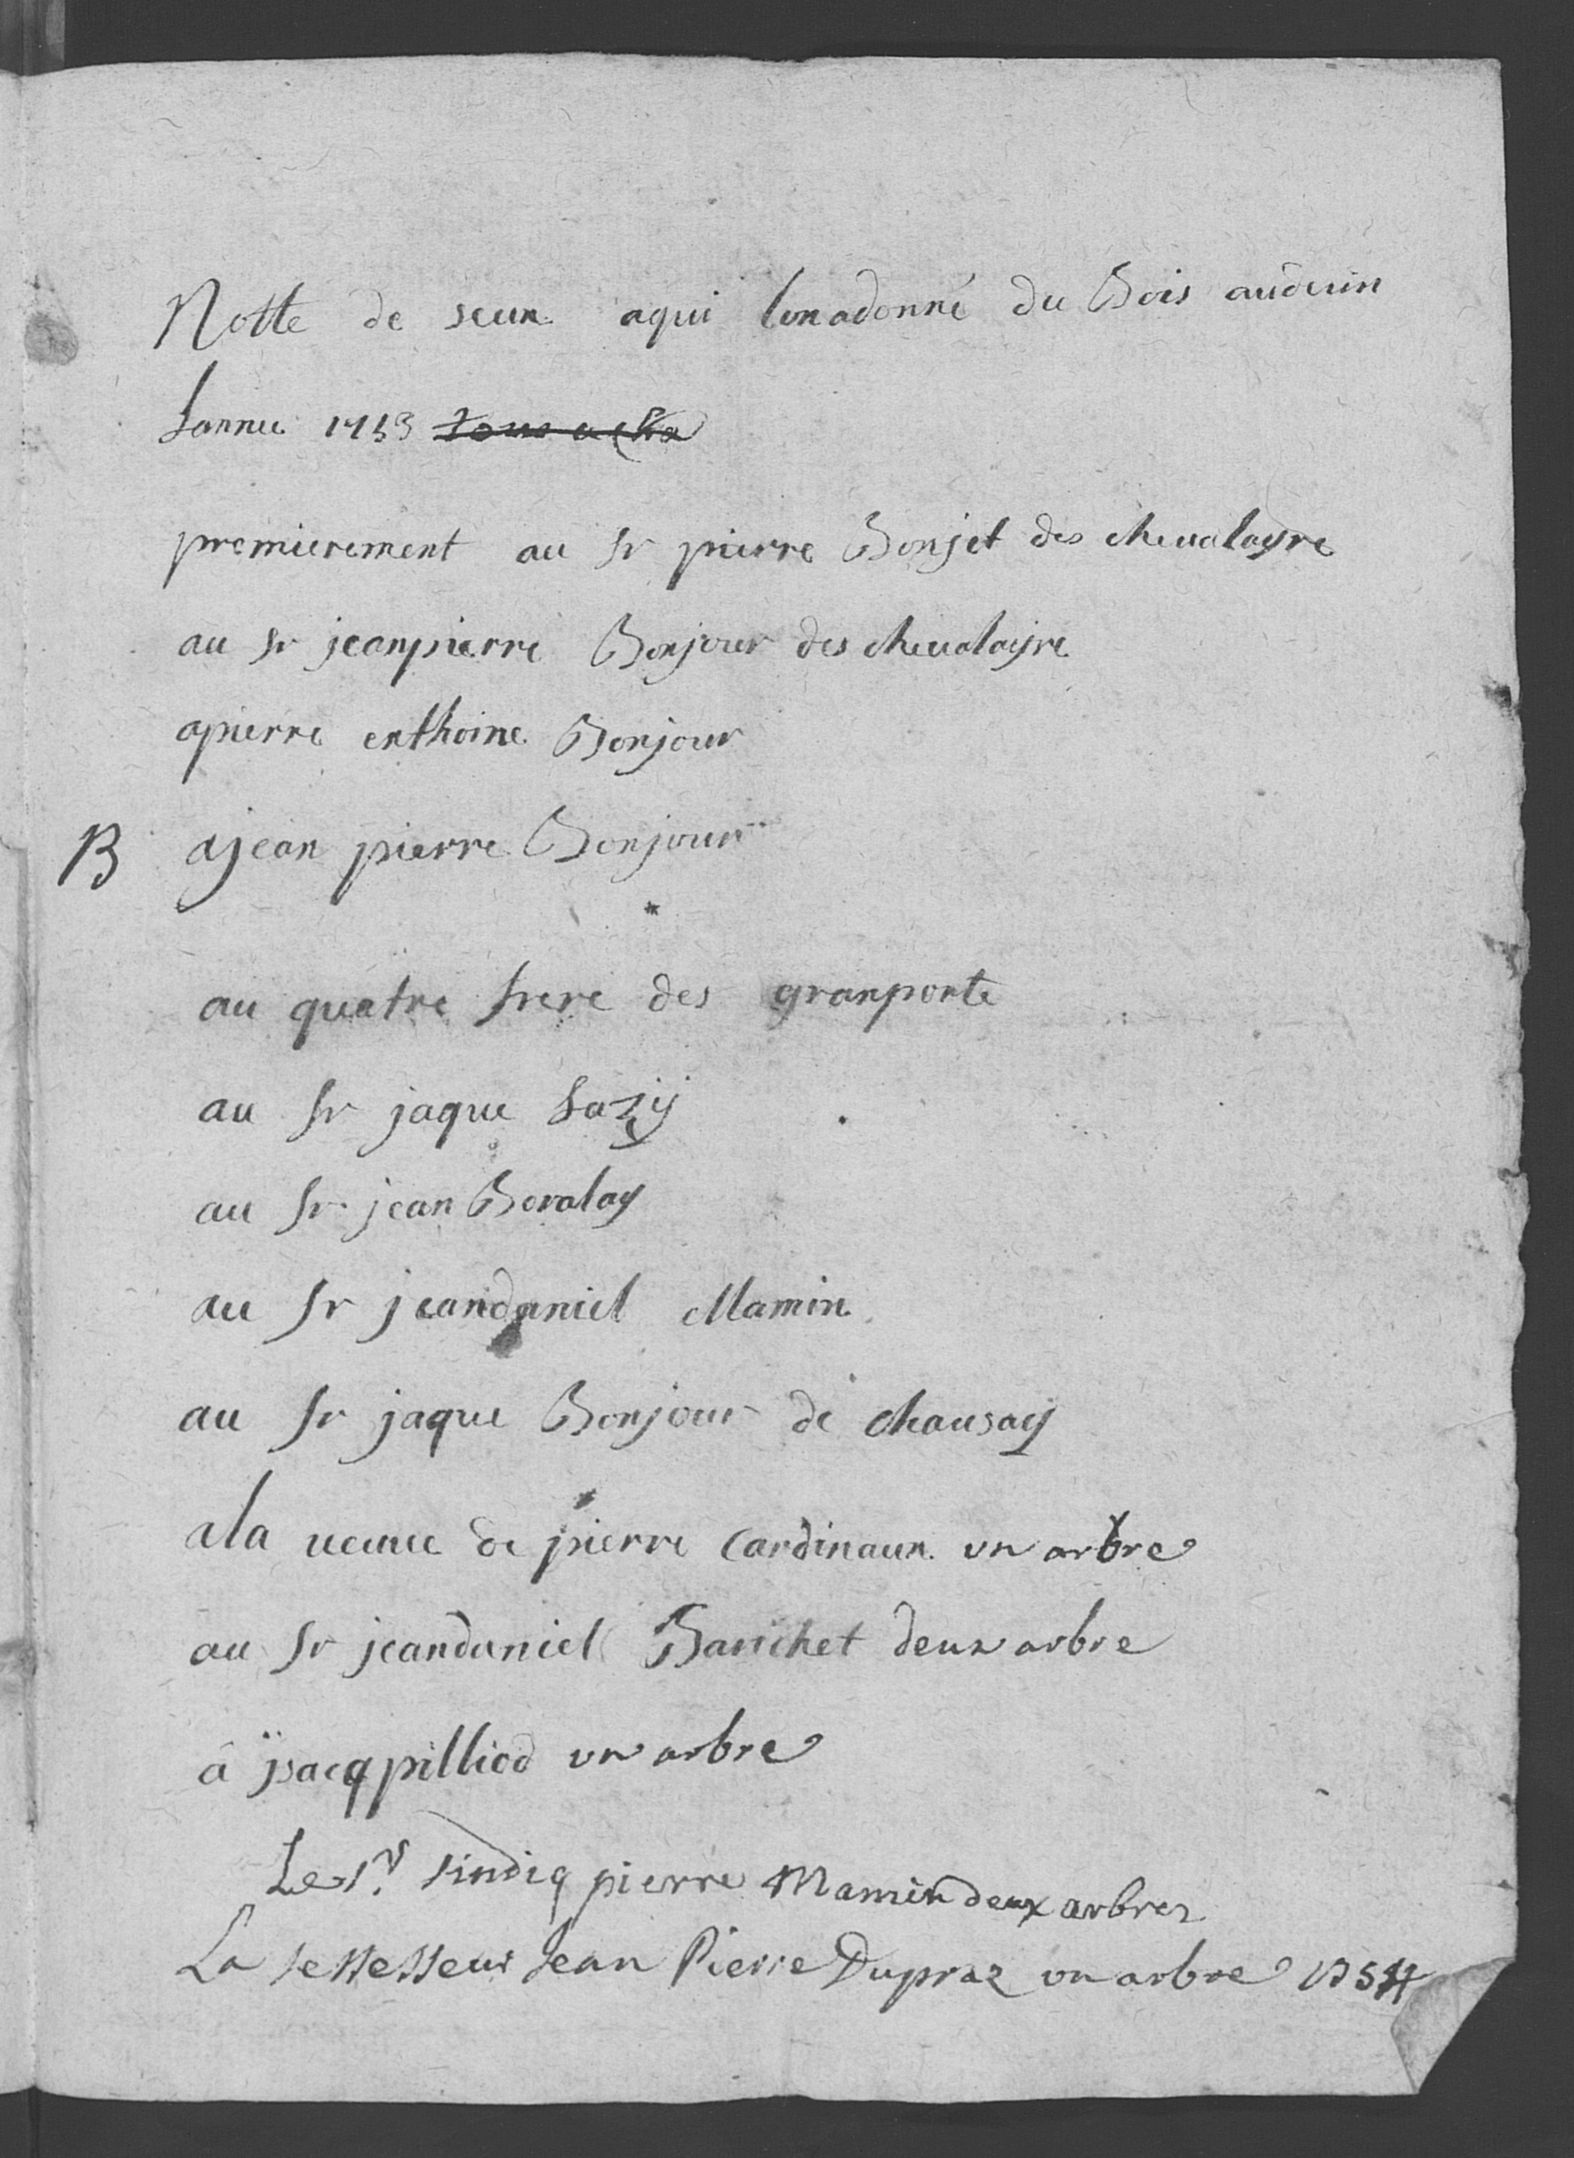 Notte de seux aqui lonadonné du Bois audevin
Lannee 1753
premierement au sr pierre Bonjet des chevalayre
au sr jeanpierre Bonjour des chevalayre
apierre enthoine Bonjour
B ajean pierre Bonjour
au quatre frere des granporte
au sr jaque Lazÿ
au sr jean Boralay
au sr jeandaniel Mamin
au sr jaque Bonjour de chausaÿ
ala veuve de pierre Cardinaux un arbre
au sr jeandaniel Barichet deux arbre
a ÿsacq pilliod un arbre
Le sr sindiq pierre Mamin deux arbres
La sessesseur Jean Pierre Dupraz un arbre 1754